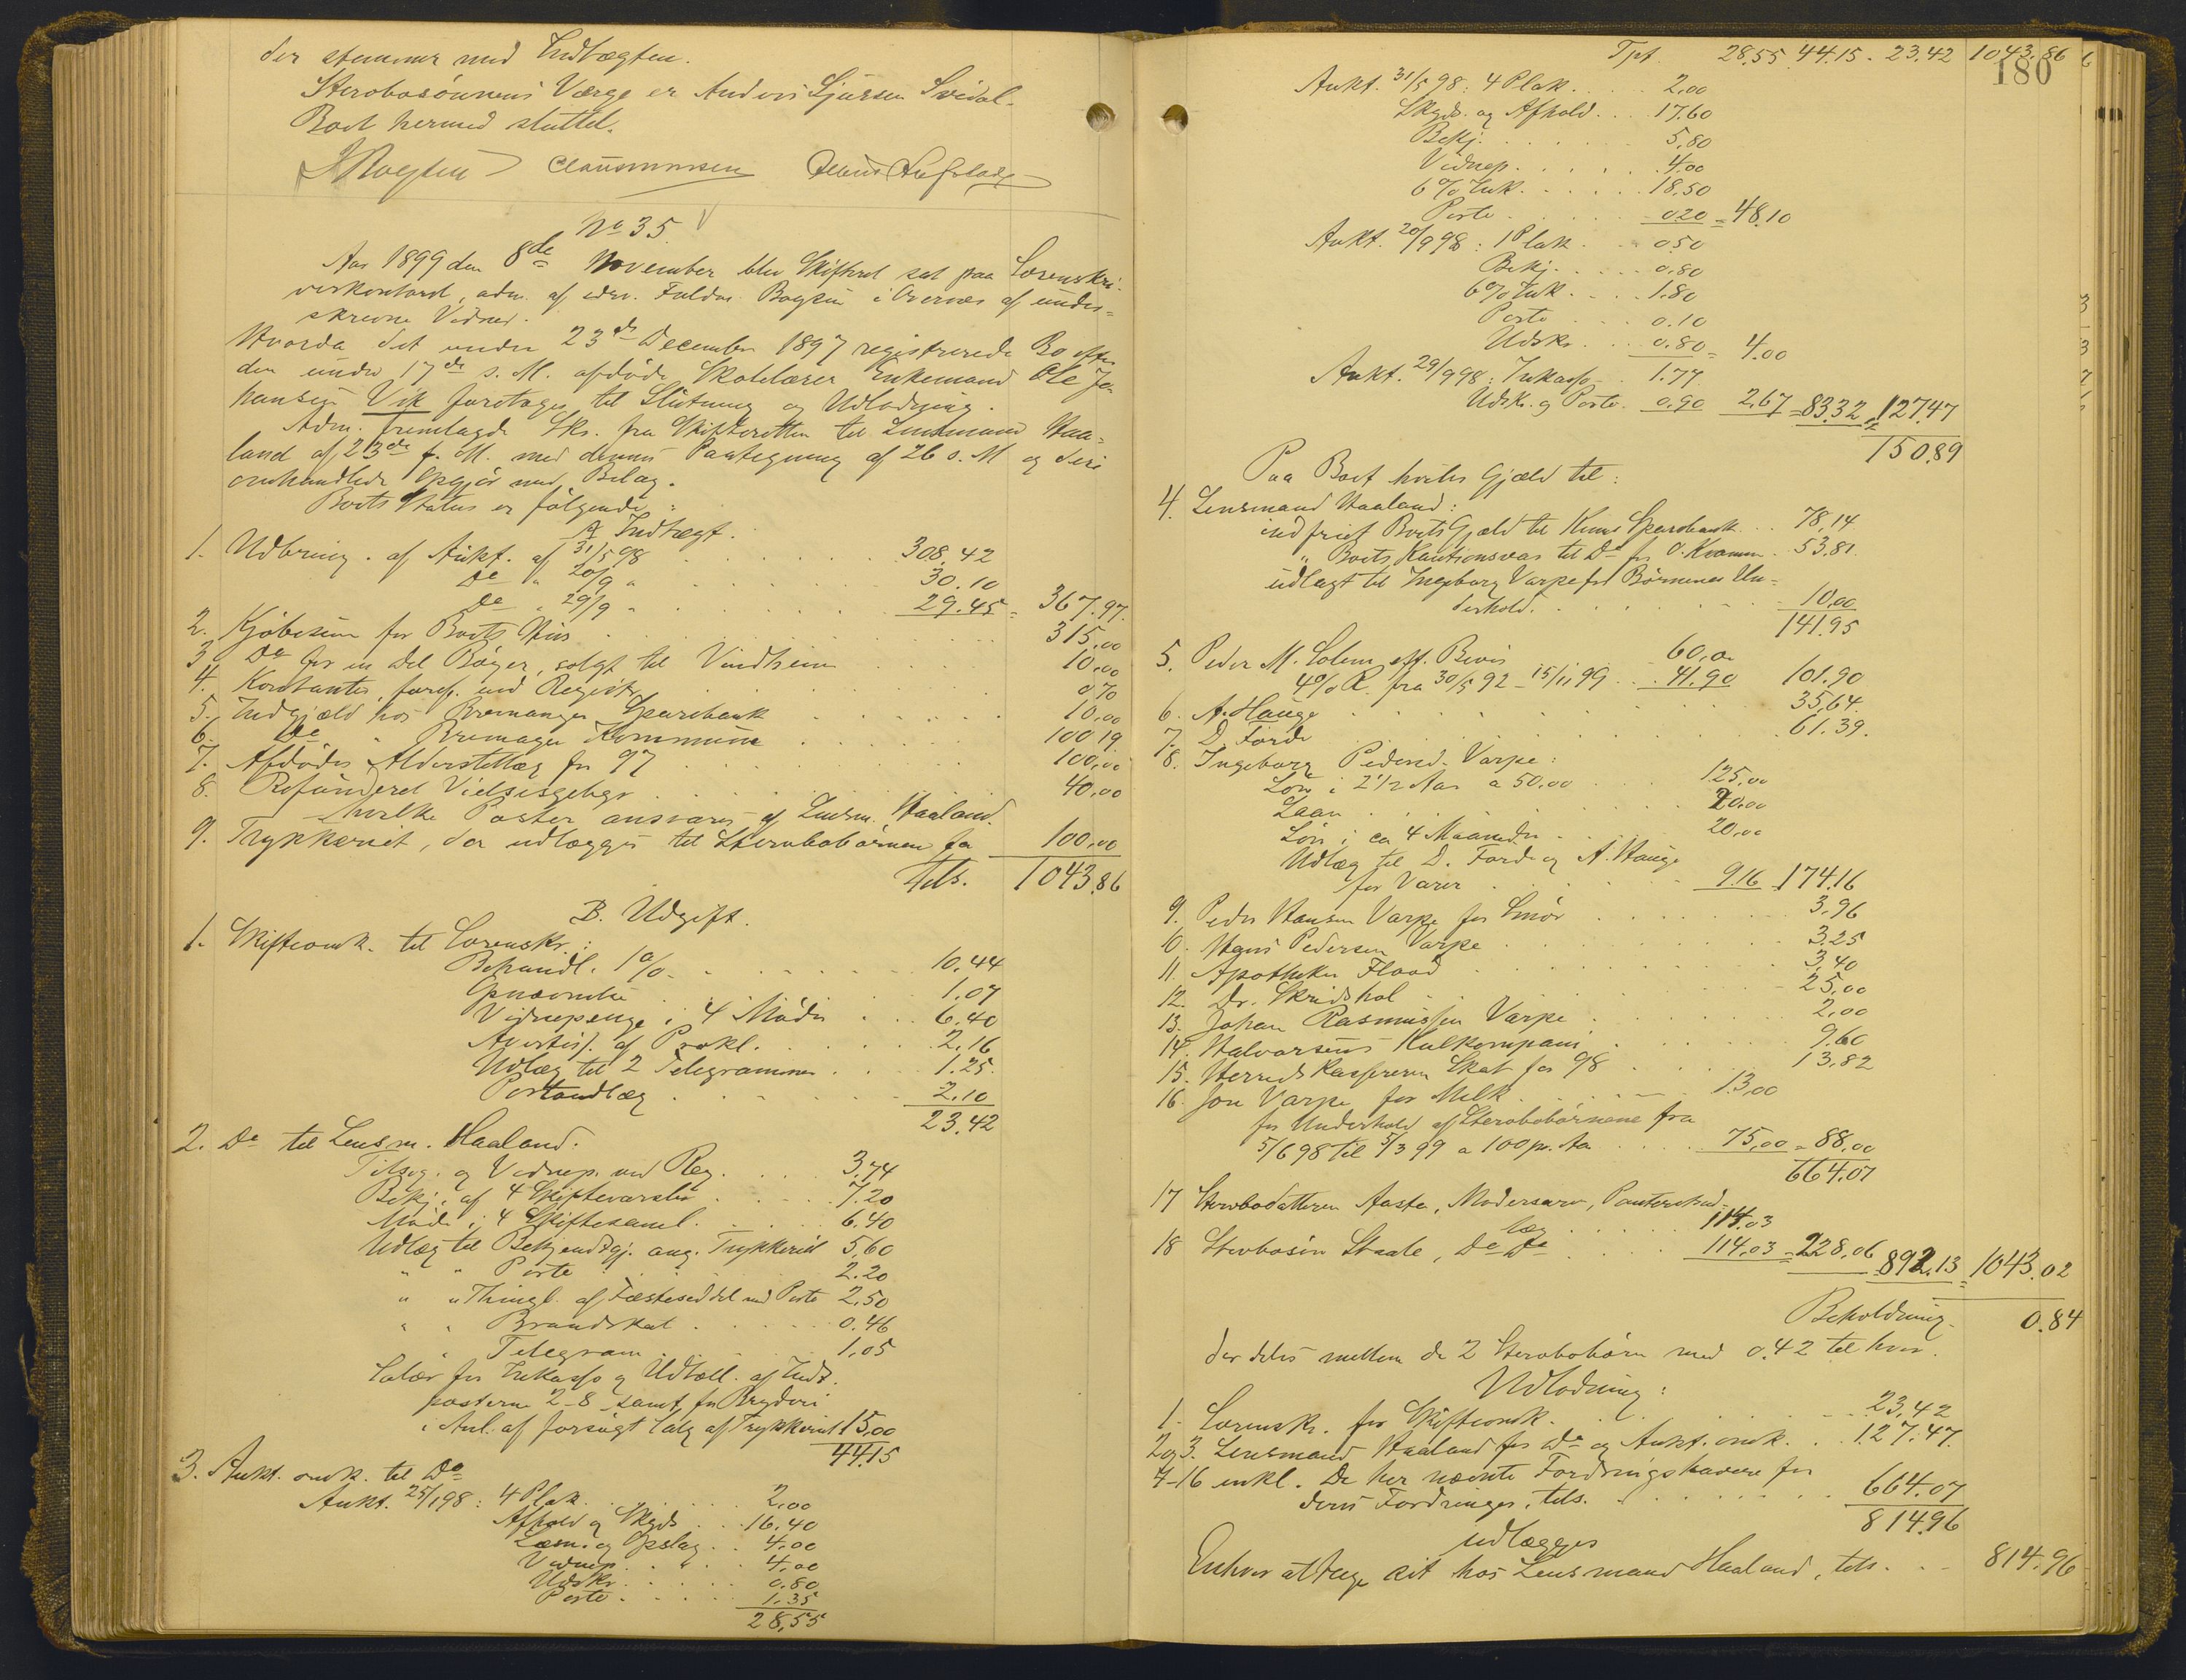 der stemmer med Indtægten.
Sterbosønnens Værge er Anders Sjursen Svidal.
Boet hermed sluttet.
Clausmonsen
No 35
Aar 1899 den 8de November blev Skifteret sat paa Sorenskri-
verkontoret, adm. af edsv. Fuldm. Bogsen i Overvær af under-
skrevne Vidner.
Hvorda det under 23de December 1897 registrerede Bo efter
den under 17de s. M. afdøde Skolelærer Enkemand Ole Jo-
hansen Vik foretoges til Slutning og Udlodning.
Adm. fremlagde Skr. fra Skifteretten til Lensmand Haa-
land af 23de f. M. med dennes Paategning af 26 s. M. og deri
omhandlede Opgjør med Bilag.
Boets Status er følgende:
A Indtægt.
1. Udbring. af Aukt. af 31/5 98 . . . . 308,42
Do " 20/9 " . . . . 30.10
Do " 29/9 " . . . . 29.45 = 367.97.
2. Kjøbesum for Boets Hus . . . . 315,00
3 Do for en Del Bøger, solgt til Vindheim . . . 10,00
4. Kontanter, foref. ved Registr. . . . . 0,70
5. Indgjæld hos Bremanger Sparebank . . . . 10,00
6. Do " Bremager Kommune . . . . 100 19
7. Afdødes Alderstillæg for 97 . . . . 100,00
8. Refunderet Vielsesgebyr . . . . 40,00
hvilke Poster ansvares af Lensm. Haaland.
9. Trykkeriet, der udlægges til Sterbobørnene for 100,00
Tils. 1043.86
B. Udgift.
1. Skifteomk. til Sorenskr.:
Behandl. 1% . . . . 10,44
Opnævnelse . . . 1.07
Vidnepenge i 4 Møder . . . 6,40
Avertiss. af Prokl. . . . . 2,16
Udlæg til 2 Telegrammer . . . 1.25.
Portoudlæg . . . . 2.10
23.42
2. Do til Lensm. Haaland.
Tilsig. og Vidnep. ved Reg. . . . 3,74
Bekj. af 4 Skiftevarsler . . . . 7.20
Møde i 4 Skiftesaml. . . . 6.40
Udlæg til Bekjendtgj. ang. Trykkeriet 5,60
" " Porto . . . 2.20
" " Thingl. af Fæsteseddel med Porto 2,50
" " Brandskat . . . . 0.46
" Telegram . . . . 1,05
Salær for Inkasso og Udbetl. af Indt.
posterne 2-8 samt for Bryderi
i Anl. af forsøgt Salg af Trykkeriet 15,00
44.15
3. Aukt. omk. til Do
Aukt. 25/1 98: 4 Plak. . . . . 2,00
Afhold og Skyds . . . 16.40
Læsn. og Opslag . . 4.00
Vidnep. . . . 4,00
Udskr. . . . . 0.80
Porto . . . . 1.35
28,55
Tpt. 28.55 44.15. 23.42 1043.86
180
Aukt. 31/5 98: 4 Plak. . . . . 2,00
Skyds. og Afhold. . . . 17.60
Bekj. . . . . 5,80
Vidnep. . . . . 4.00
6% Ink. . . . . 18,50
Porto . . . . 0.20 = 48.10
Aukt. 20/9 98: 1 Plak. . . 0,50
Bekj. . . . . 0.80
6% Ink. . . . 1.80
Porto . . . 0.10
Udskr. . . . 0.80 = 4.00
Aukt. 29/9 98: Inkasso . . 1.77
Udsk. og Porto. 0.90 2,67 = 83.32 = 127.47
150.89
Paa Boet hviler Gjæld til:
4. Lensmand Haaland:
indfriet Boets Gjæld til Kinns Sparebank . . 78,14
" Boets Kautionsvar til Do for O. Kvamme . 53,81.
udlagt til Ingeborg Varpe for Børnenes Un-
derhold. . . . . 10,00
141.95
5. Peder M. Solem eft. Bevis . . 60,00
4% R. fra 30/5 92 - 15/11 99 . . . 41.90 101.90
6. A. Hauge . . . . 35,64.
7. D. Førde . . . . 61.39.
8. Ingeborg Pedersd. Varpe:
Løn i 2 1/2 Aar a 50,00 . . . 125,00
Laan . . . . 20,00
Løn i ca 4 Maaneder . . . 20,00
Udlæg til D. Førde og A. Hauge
for Varer . . . . 9.16 174.16
9. Peder Hansen Varpe for Smør . . . . 3,96
10. Hans Pedersen Varpe . . . . 3.25
11. Apotheker Flood . . . . 3,40
12. Dr. Skridshol . . . . 25,00
13. Johan Rasmussen Varpe . . . . 2,00
14. Halvorsens Kulkompani . . . . 9.60
15. Herredskassereren Skat for 98 . . . . 13,82
16. Jon Varpe for Melk . . . . 13,00
for Underhold af Sterbobørnene fra
5/6 98 til 5/3 99 a 100 pr. Aar . . . . 75,00 = 88,00
664.07
17 Sterbodatteren Aasta, Modersarv, Panterets ud-
læg . . . . 114.03
18 Sterbosøn Staale, Do Do . . . . 114.03 = 228,06 892.13 1043.02
Beholdning 0.84
der deles mellem de 2 Sterbobørn med 0.42 til hver.
Udlodning:
1. Sorenskr. for Skifteomk. . . . . 23,42
2 og 3. Lensmand Haaland for Do og Aukt. omk. . . 127.47.
4-16 inkl. De her nævnte Fordringshavere for
deres Fordringer, tils. . . . . 664.07
814.96
udlægges
Enhver at tage sit hos Lensmand Haaland, tils. . . 814.96